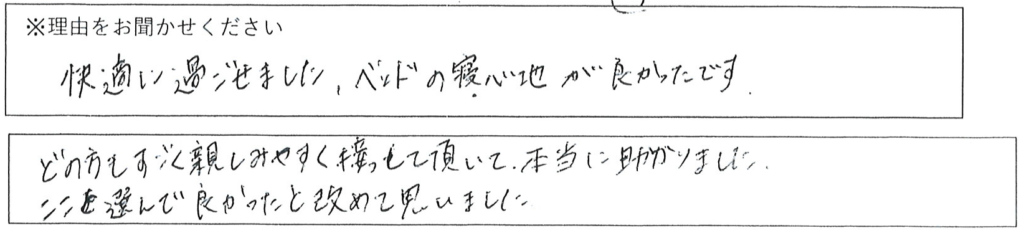 ※理由をお聞かせください
快適に過ごせました、ベッドの寝心地が良かったです.
どの方もすごく親しみやすく接して頂いて、本当に助かりました.
ここを選んで良かったと改めて思いました